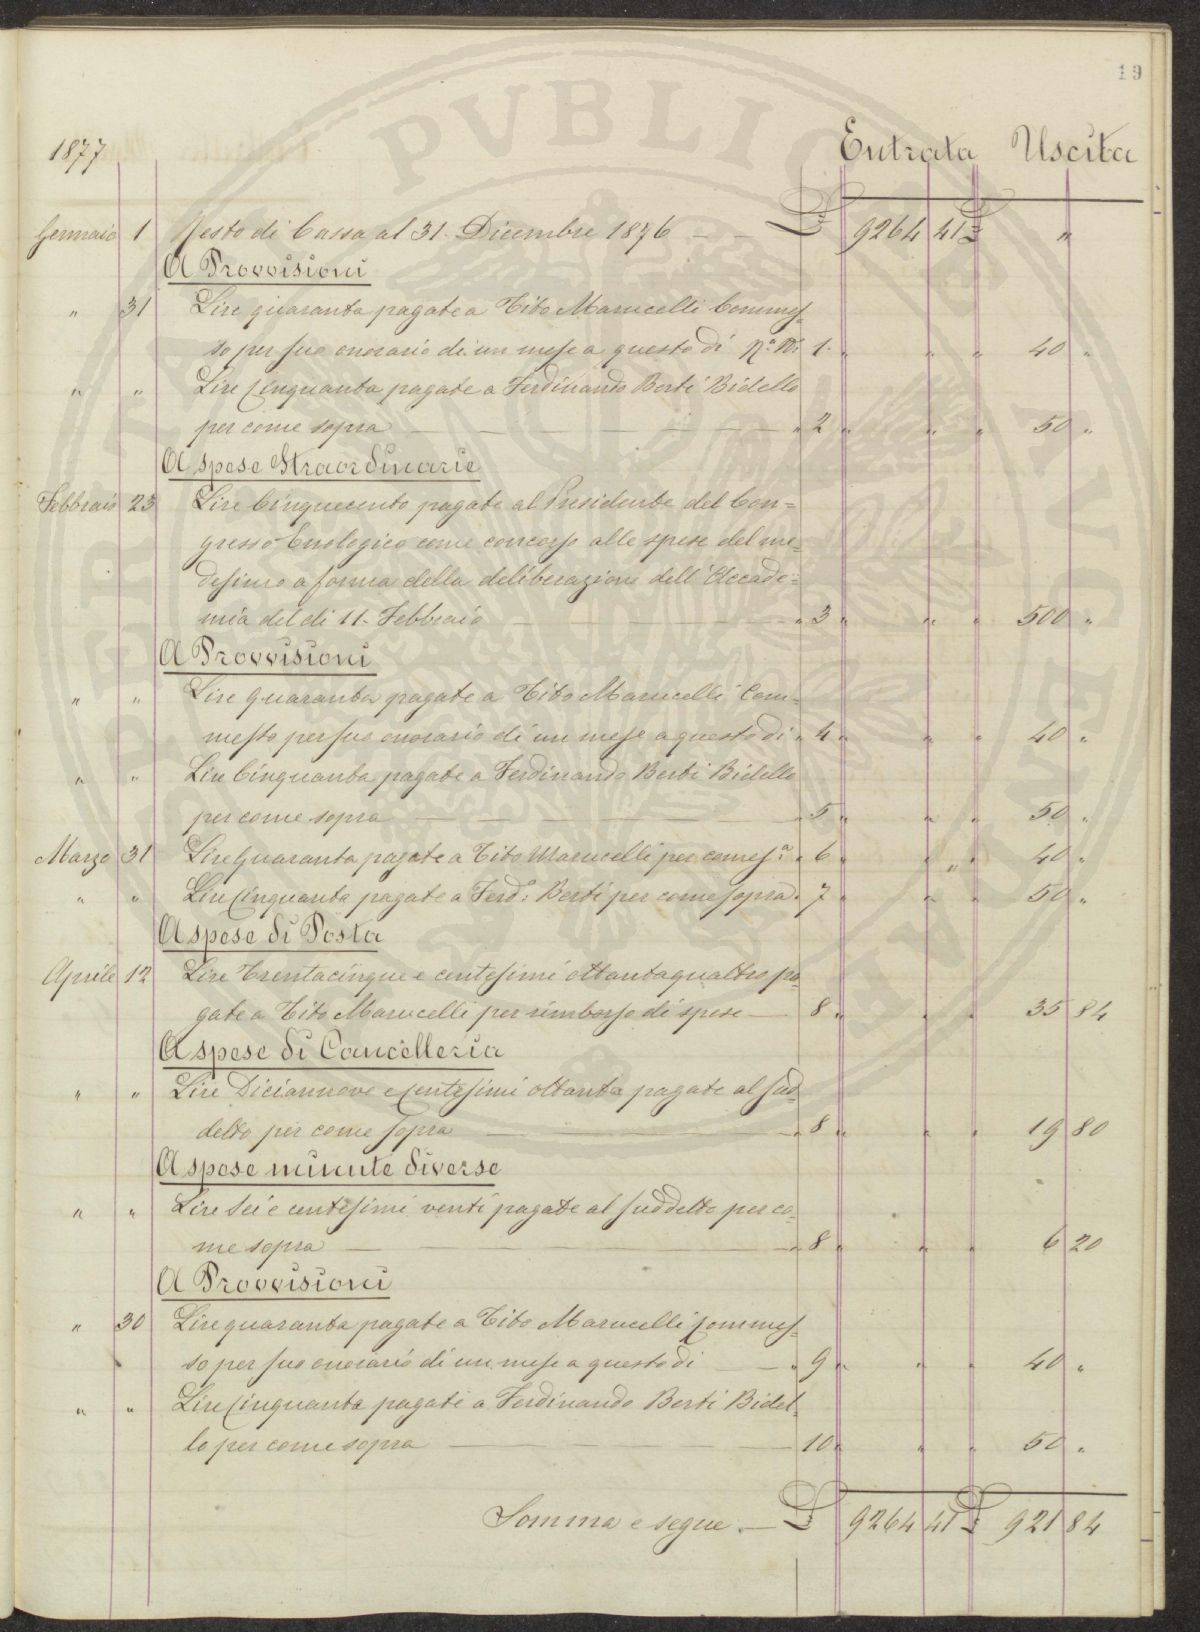 19
1877 Entrata Uscita
Gennaio 1 Resto di Cassa al 31. Dicembre 1876 — — £ 9264 41 £ "
A Provvisioni
" 31 Lire quaranta pagate a Tito Marucelli Commes-
so per suo onorario di un mese a questo dì N.° 1. " " " 40 "
" " Lire Cinquanta pagate a Ferdinando Berti Bidello
per come sopra — — — " 2 " " " 50 "
A spese Straordinarie
Febbraio 23 Lire Cinquecento pagate al Presidente del Con=
gresso Enologico come concorso alle spese del me=
desimo a forma della deliberazione dell'Accade=
mia del dì 11. Febbraio — — " 3 " " " 500 "
A Provvisioni
" " Lire quaranta pagate a Tito Marucelli Com=
messo per suo onorario di un mese a questo dì " 4 " " " 40 "
" " Lire Cinquanta pagate a Ferdinando Berti Bidello
per come sopra — — — " 5 " " " 50 "
Marzo 31 Lire Quaranta pagate a Tito Marucelli per come s.a " 6 " " 40 "
" " Lire Cinquanta pagate a Ferd.o Berti per come sopra " 7 " " " 50 "
A spese di Posta
Aprile 12 Lire Trentacinque e centesimi ottantaquattro pa-
gate a Tito Marucelli per rimborso di spese — 8 " " " 35 84
A spese di Cancelleria
" " Lire Diciannove e Centesimi ottanta pagate al sud-
detto per come sopra — — " 8 " " " 19 80
A spese minute diverse
" " Lire Sei e centesimi venti pagate al suddetto per co-
me sopra — — — " 8 " " " 6 20
A Provvisioni
" 30 Lire quaranta pagate a Tito Marucelli Commes-
so per suo onorario di un mese a questo dì — " 9 " " " 40 "
" " Lire Cinquanta pagate a Ferdinando Berti Bidel-
lo per come sopra — — — 10 " " " 50 "
Somma e segue. — £ 9264 41 £ 921 84